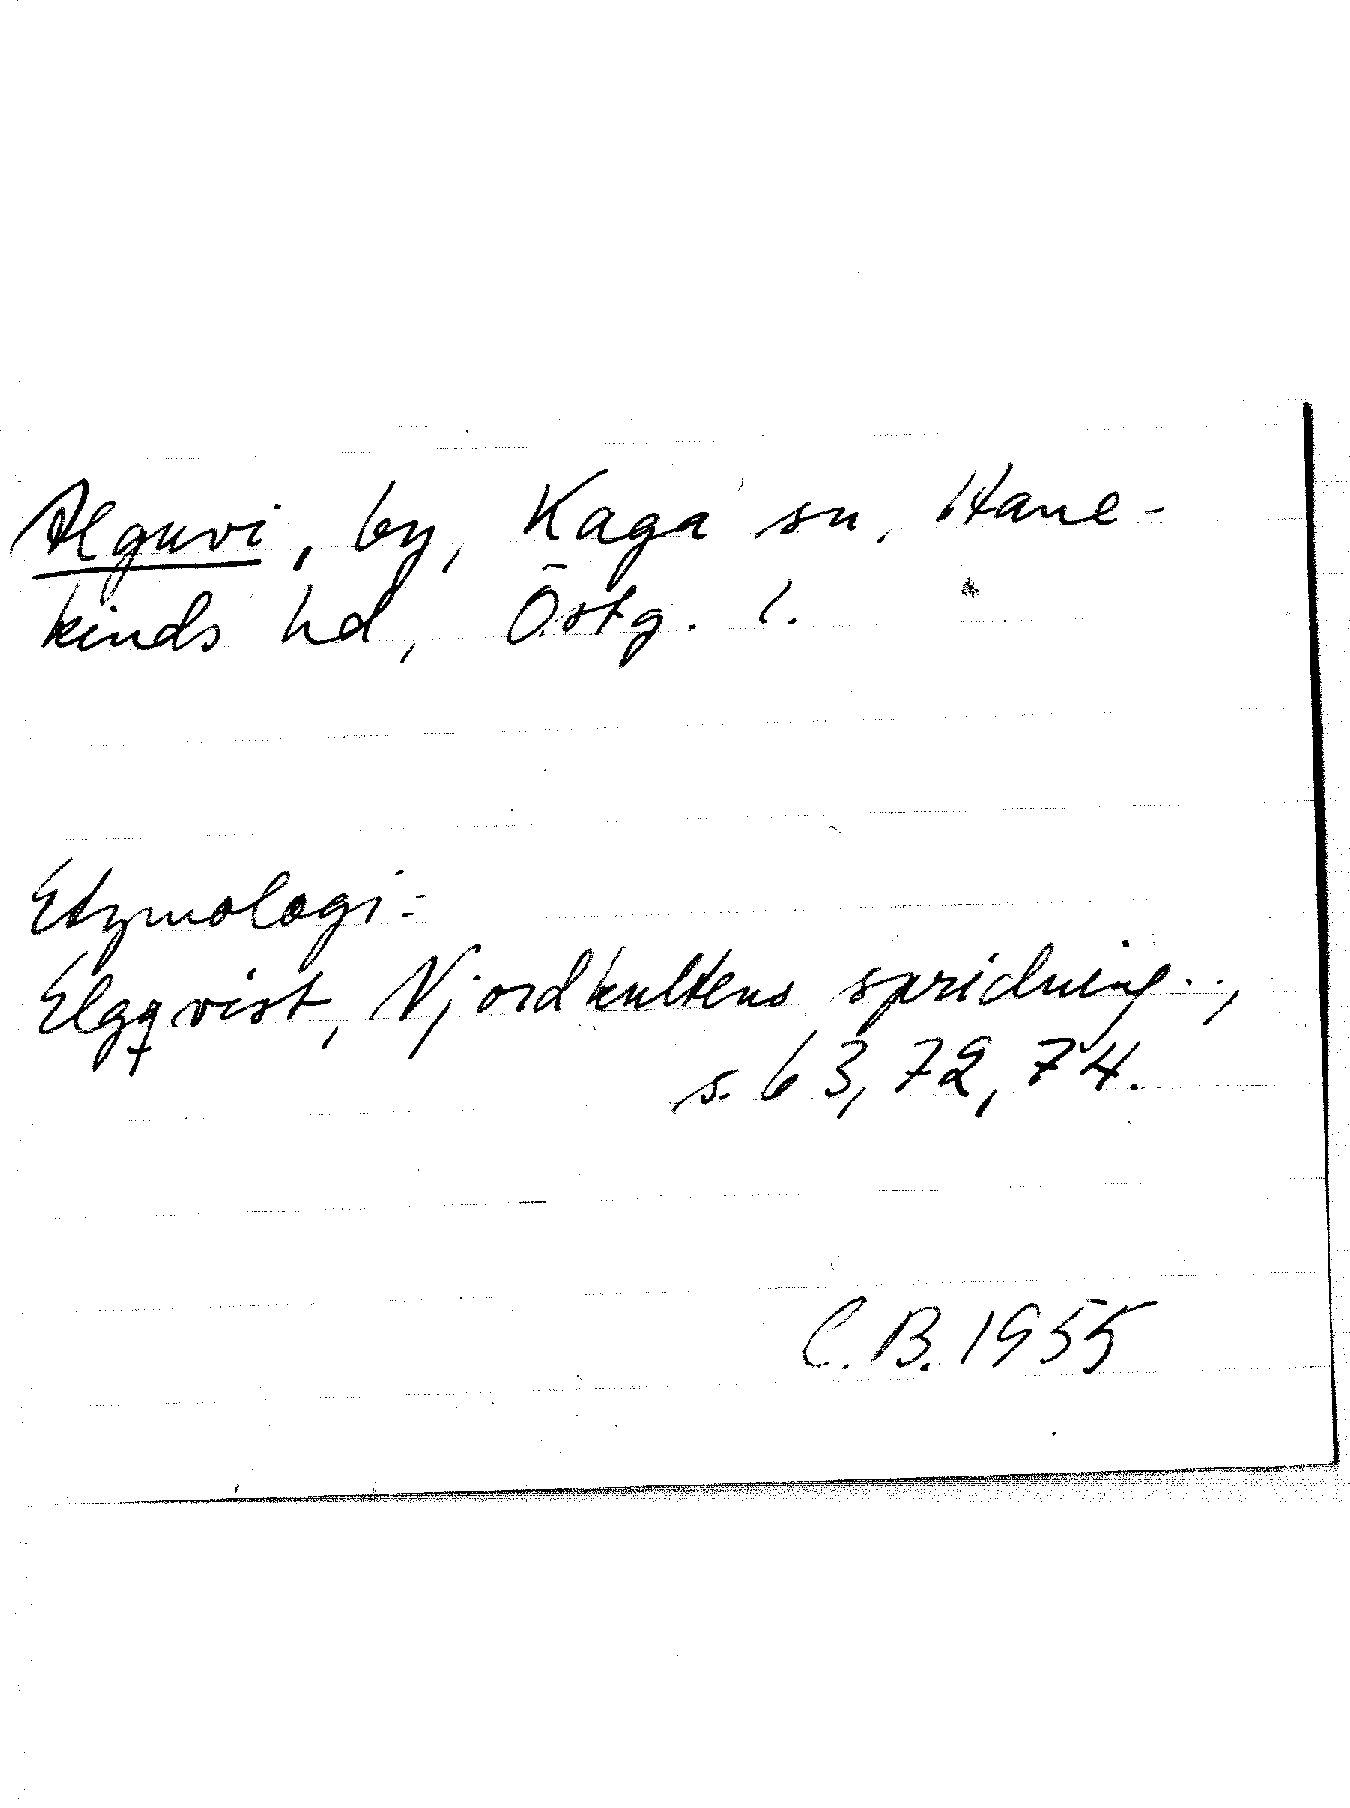 Alguvi, by, Kaga sn, Hane-
kinds hd, Östg. l.
Etymologi:
Elgqvist, Njordkultens spridning..,
s. 63, 72, 74.
C. B. 1955